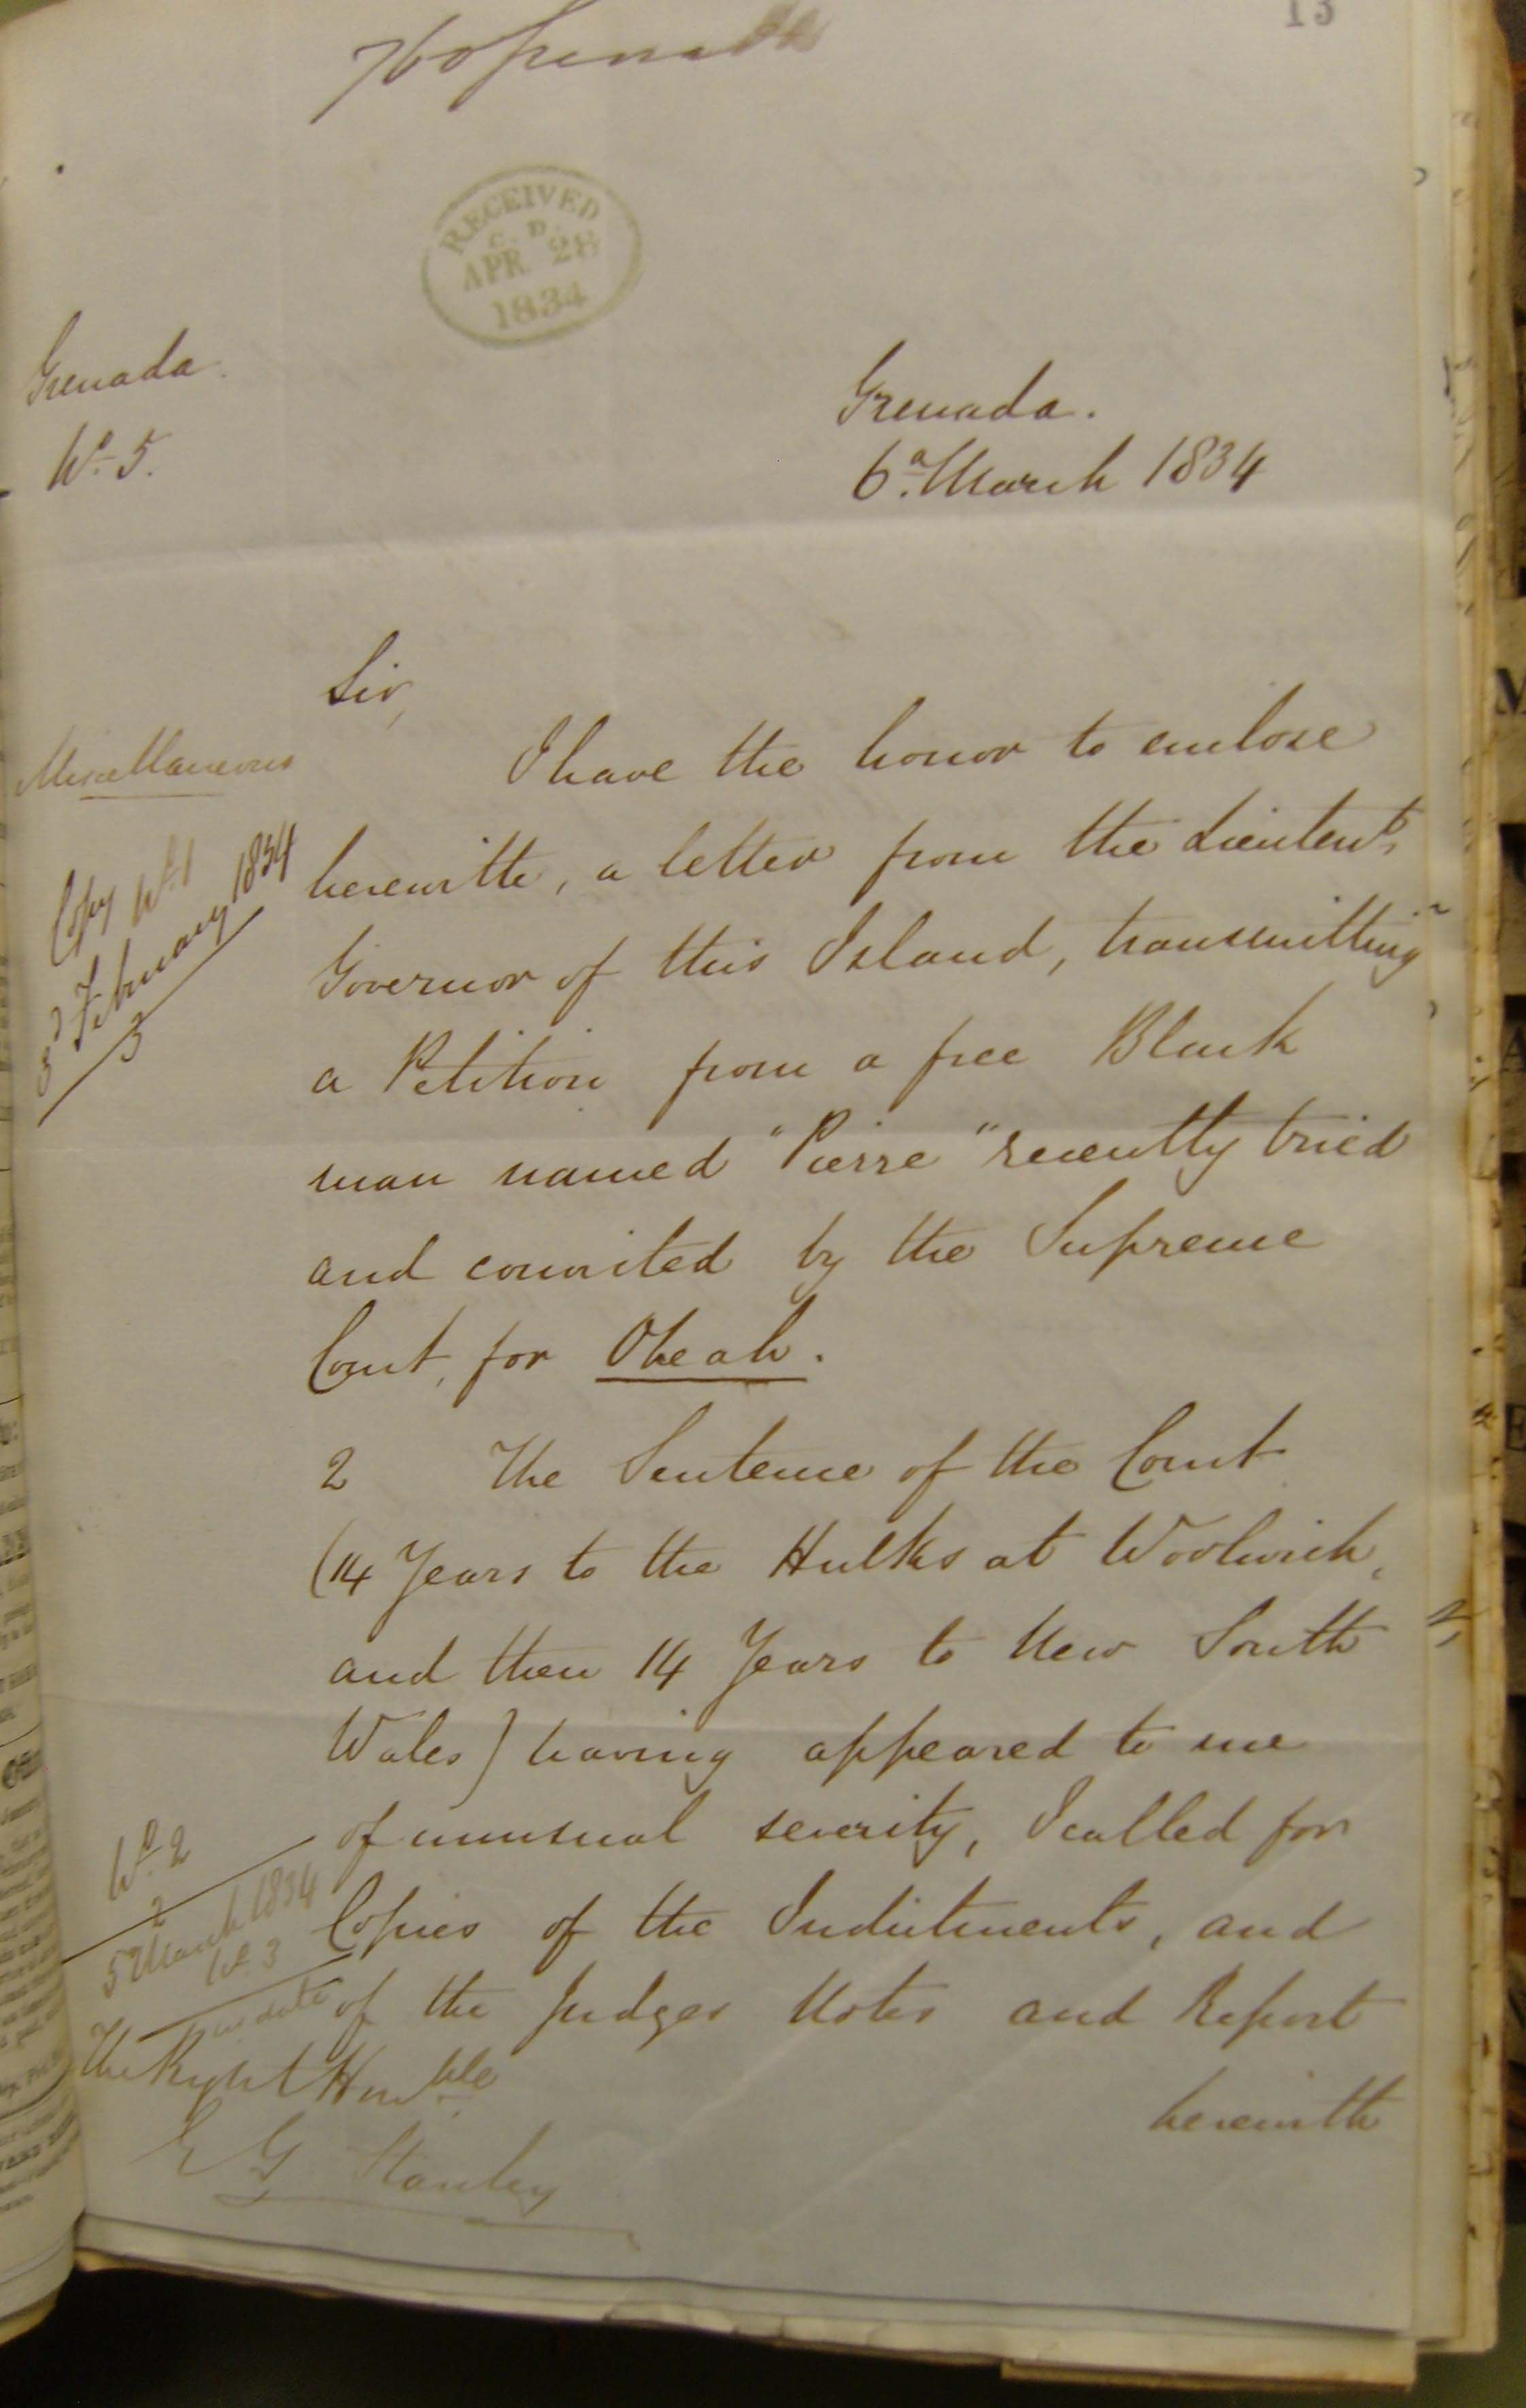 13
760 Grenada
RECEIVED
C. D.
APR 28
1834
Grenada.
No. 5.
Grenada.
6th March 1834
Sir,
Miscellaneous
I have the honor to enclose
Copy No. 1
3d February 1834
3
herewith, a letter from the Lieutent.
Governor of this Island, transmitting
a Petition from a free Black
man named "Pierre" recently tried
and convicted by the Supreme
Court, for Obeah.
2 The Sentence of the Court
(14 Years to the Hulks at Woolwich,
and then 14 Years to New South
Wales) having appeared to me
of unusual severity, I called for
No. 2
2
5 March 1834
No. 3
no date
Copies of the Indictments, and
of the Judges Notes and Report
herewith
The Right Honble.
E G Stanley